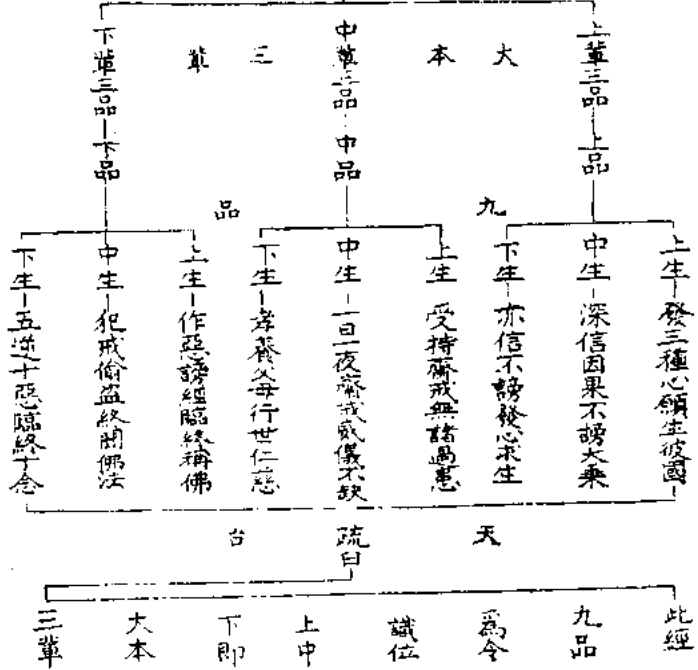 大本三輩
上輩三品 上品
中輩三品 中品
下輩三品 下品
九品
上生 發三種心願生彼國
中生 深信因果不謗大乘
下生 亦信不謗發心求生
上生 受持齋戒無諸過患
中生 一日一夜齋戒威儀不缺
下生 孝養父母行世仁慈
上生 作惡謗經臨終稱佛
中生 犯戒偷盜終聞佛法
下生 五逆十惡臨終十念
天台
疏曰
此經
九品
為令
識位
上中
下即
大本
三輩